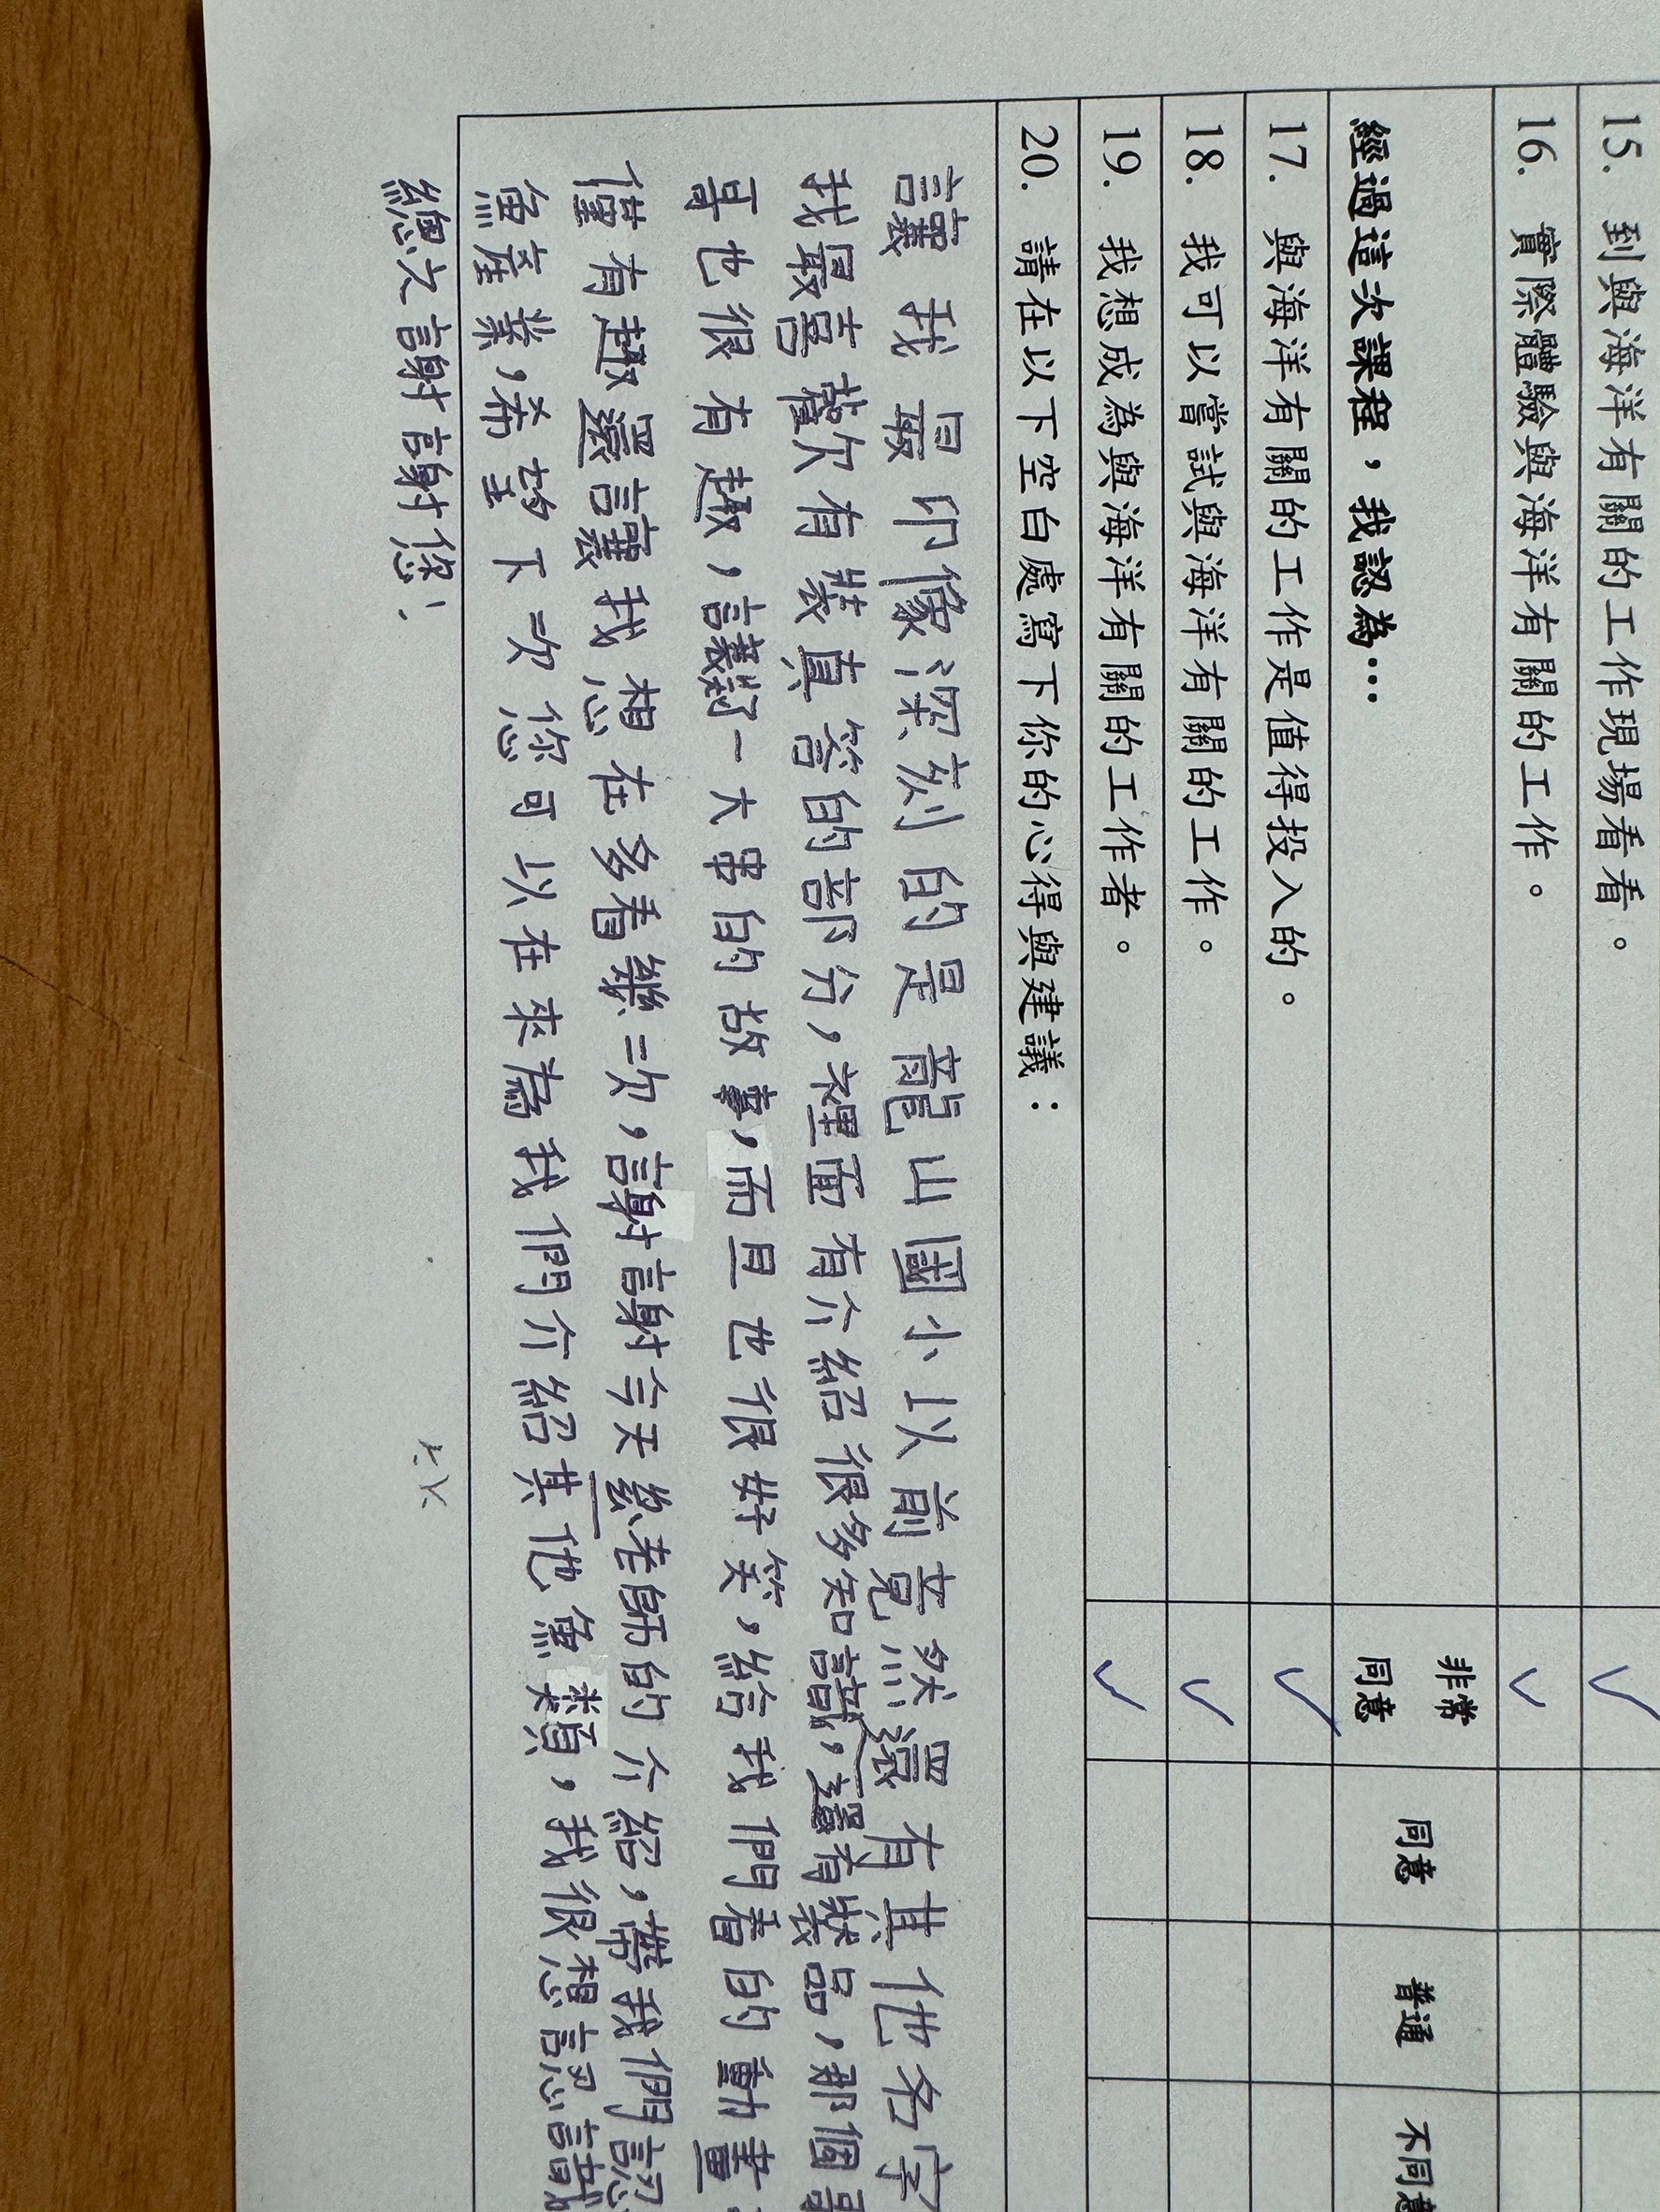 15. 到與海洋有關的工作現場看看。
16. 實際體驗與海洋有關的工作。
經過這次課程，我認為… 非常同意 同意 普通 不同意
17. 與海洋有關的工作是值得投入的。
18. 我可以嘗試與海洋有關的工作。
19. 我想成為與海洋有關的工作者。
20. 請在以下空白處寫下你的心得與建議：
讓我最印像深刻的是龍山國小以前竟然還有其他名字
我最喜歡有獎真答的部分，裡面有介紹很多知識，還有獎品，那個哥
哥也很有趣，講了一大串的故事，而且也很好笑，給我們看的動畫
僅有趣還讓我想在多看幾次，謝謝今天 老師的介紹，帶我們認
魚產業，希望下次您可以在來為我們介紹其他魚類，我很想認識
總之謝謝您！